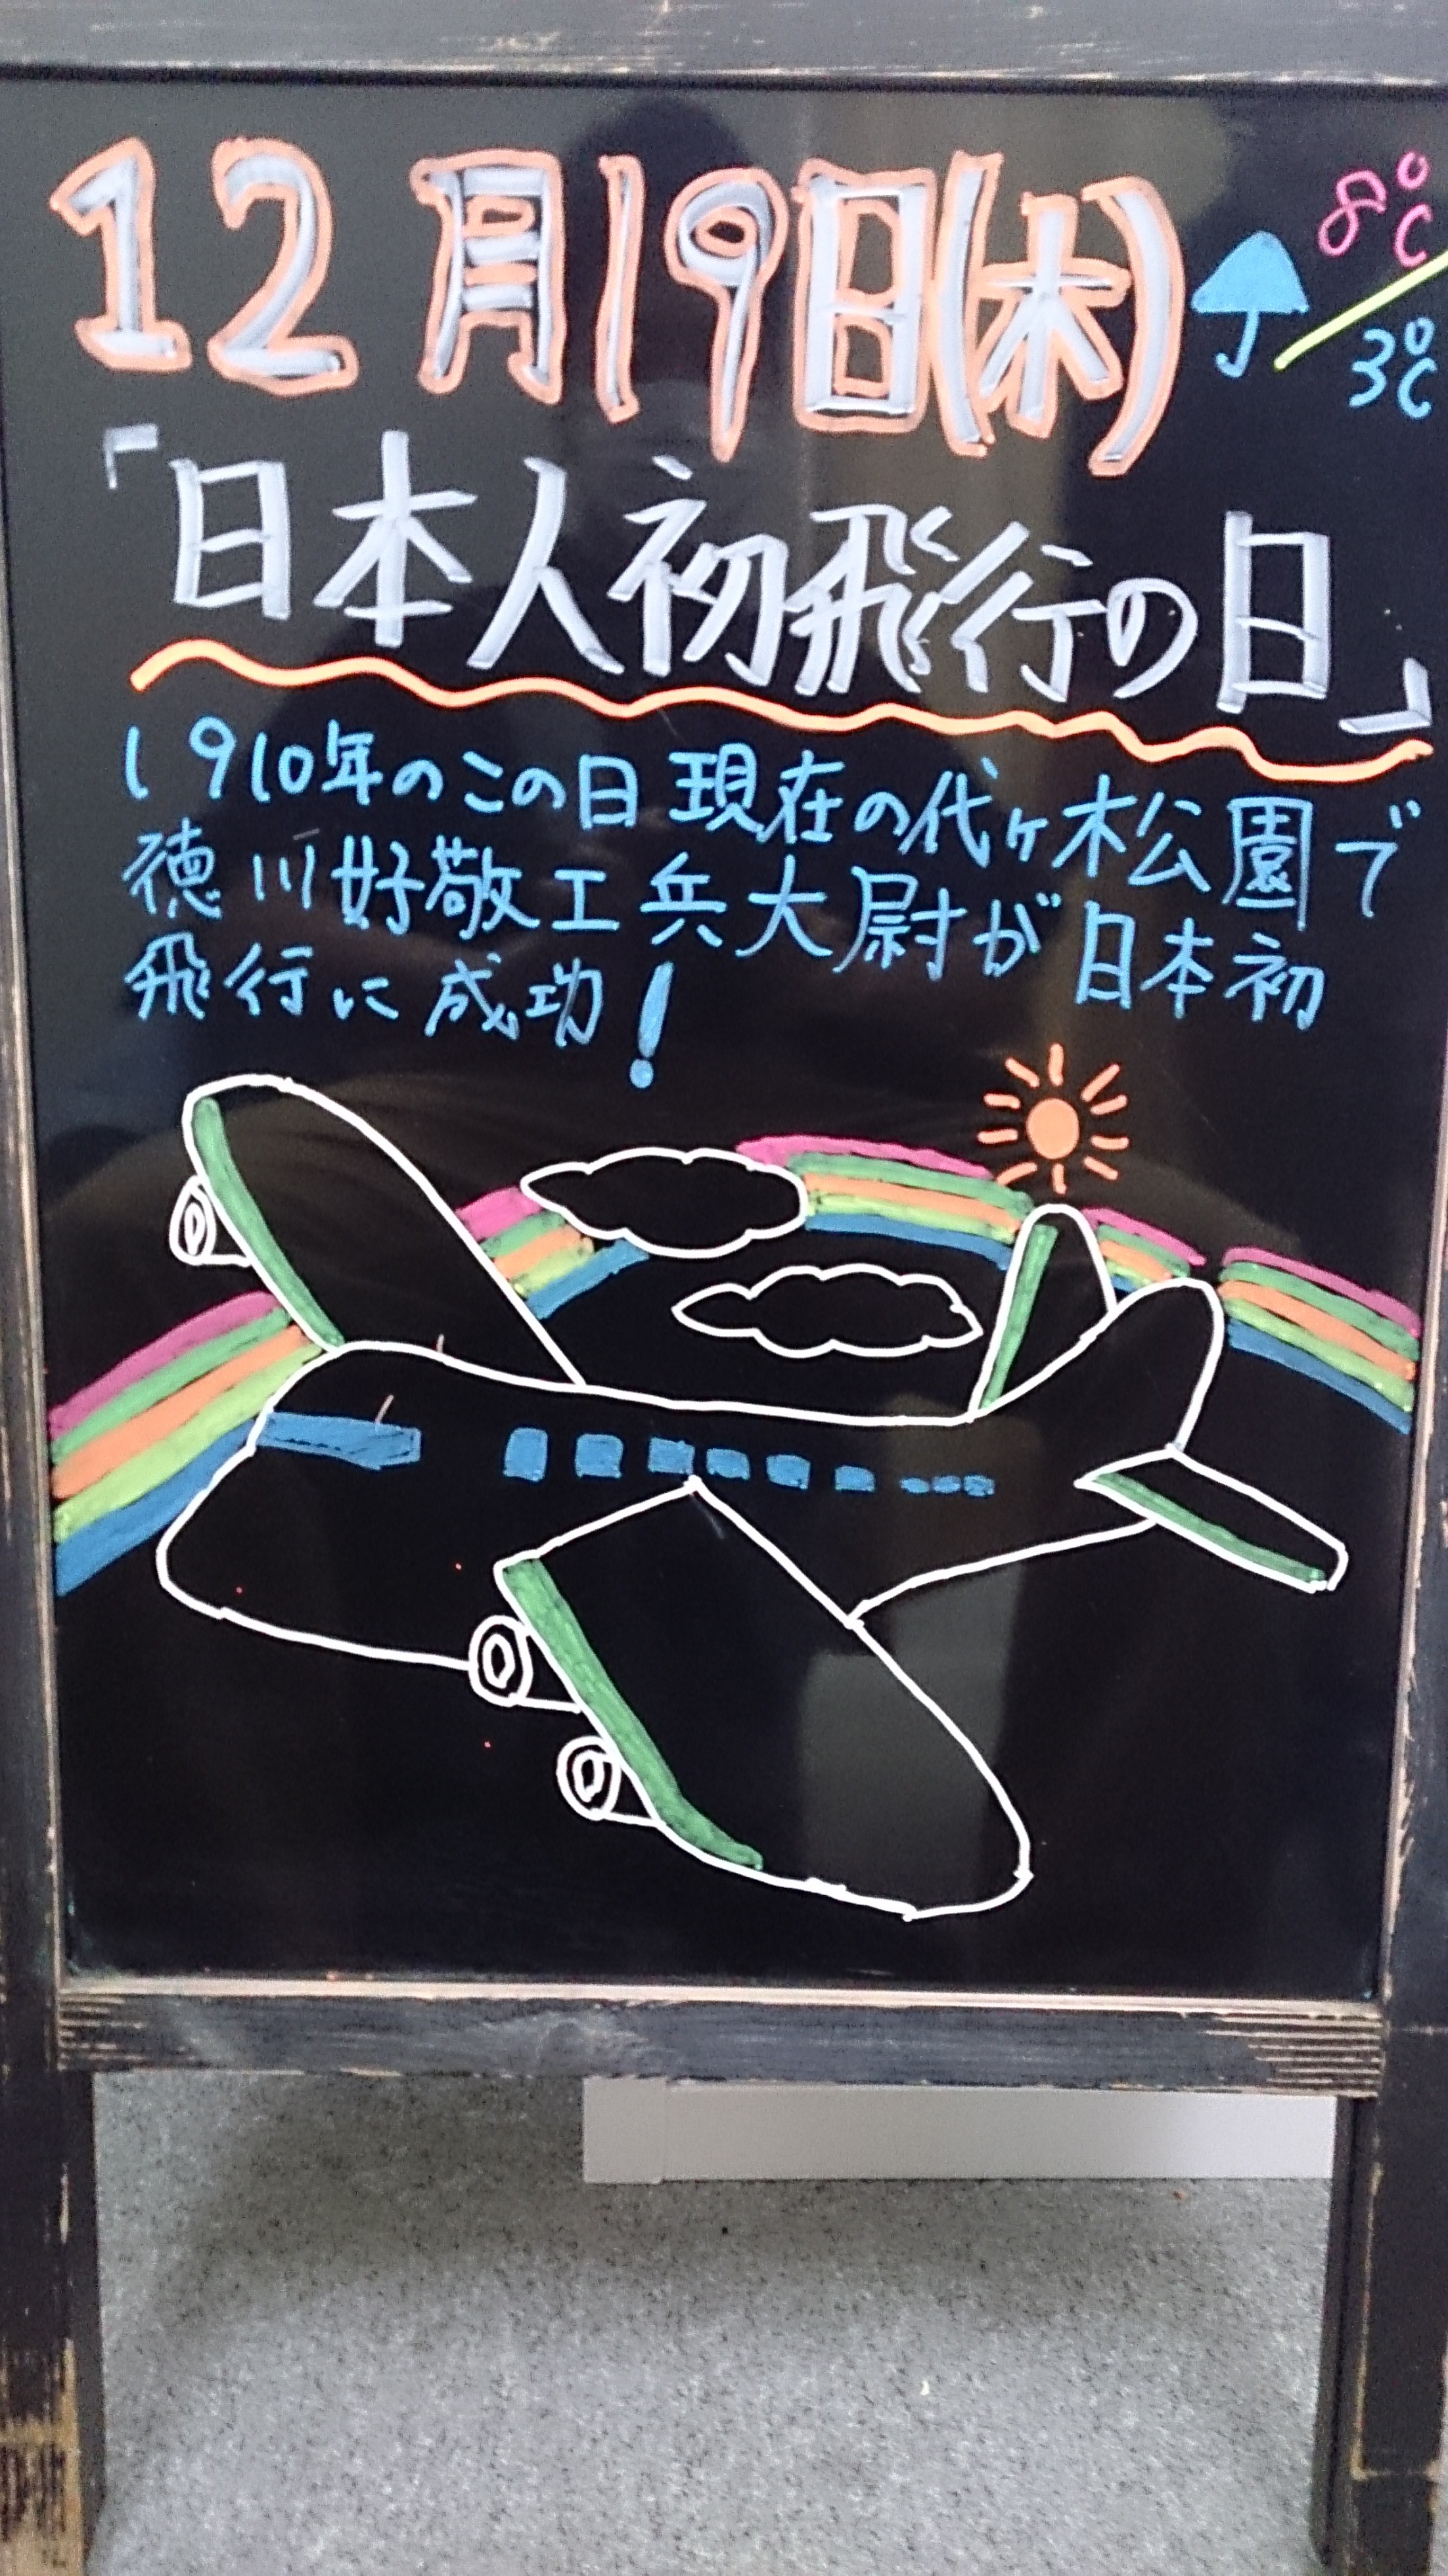 12月19日(木) 8℃/3℃
「日本人初飛行の日」
1910年のこの日現在の代ヶ木公園で
徳川好敬工兵大尉が日本初
飛行に成功!